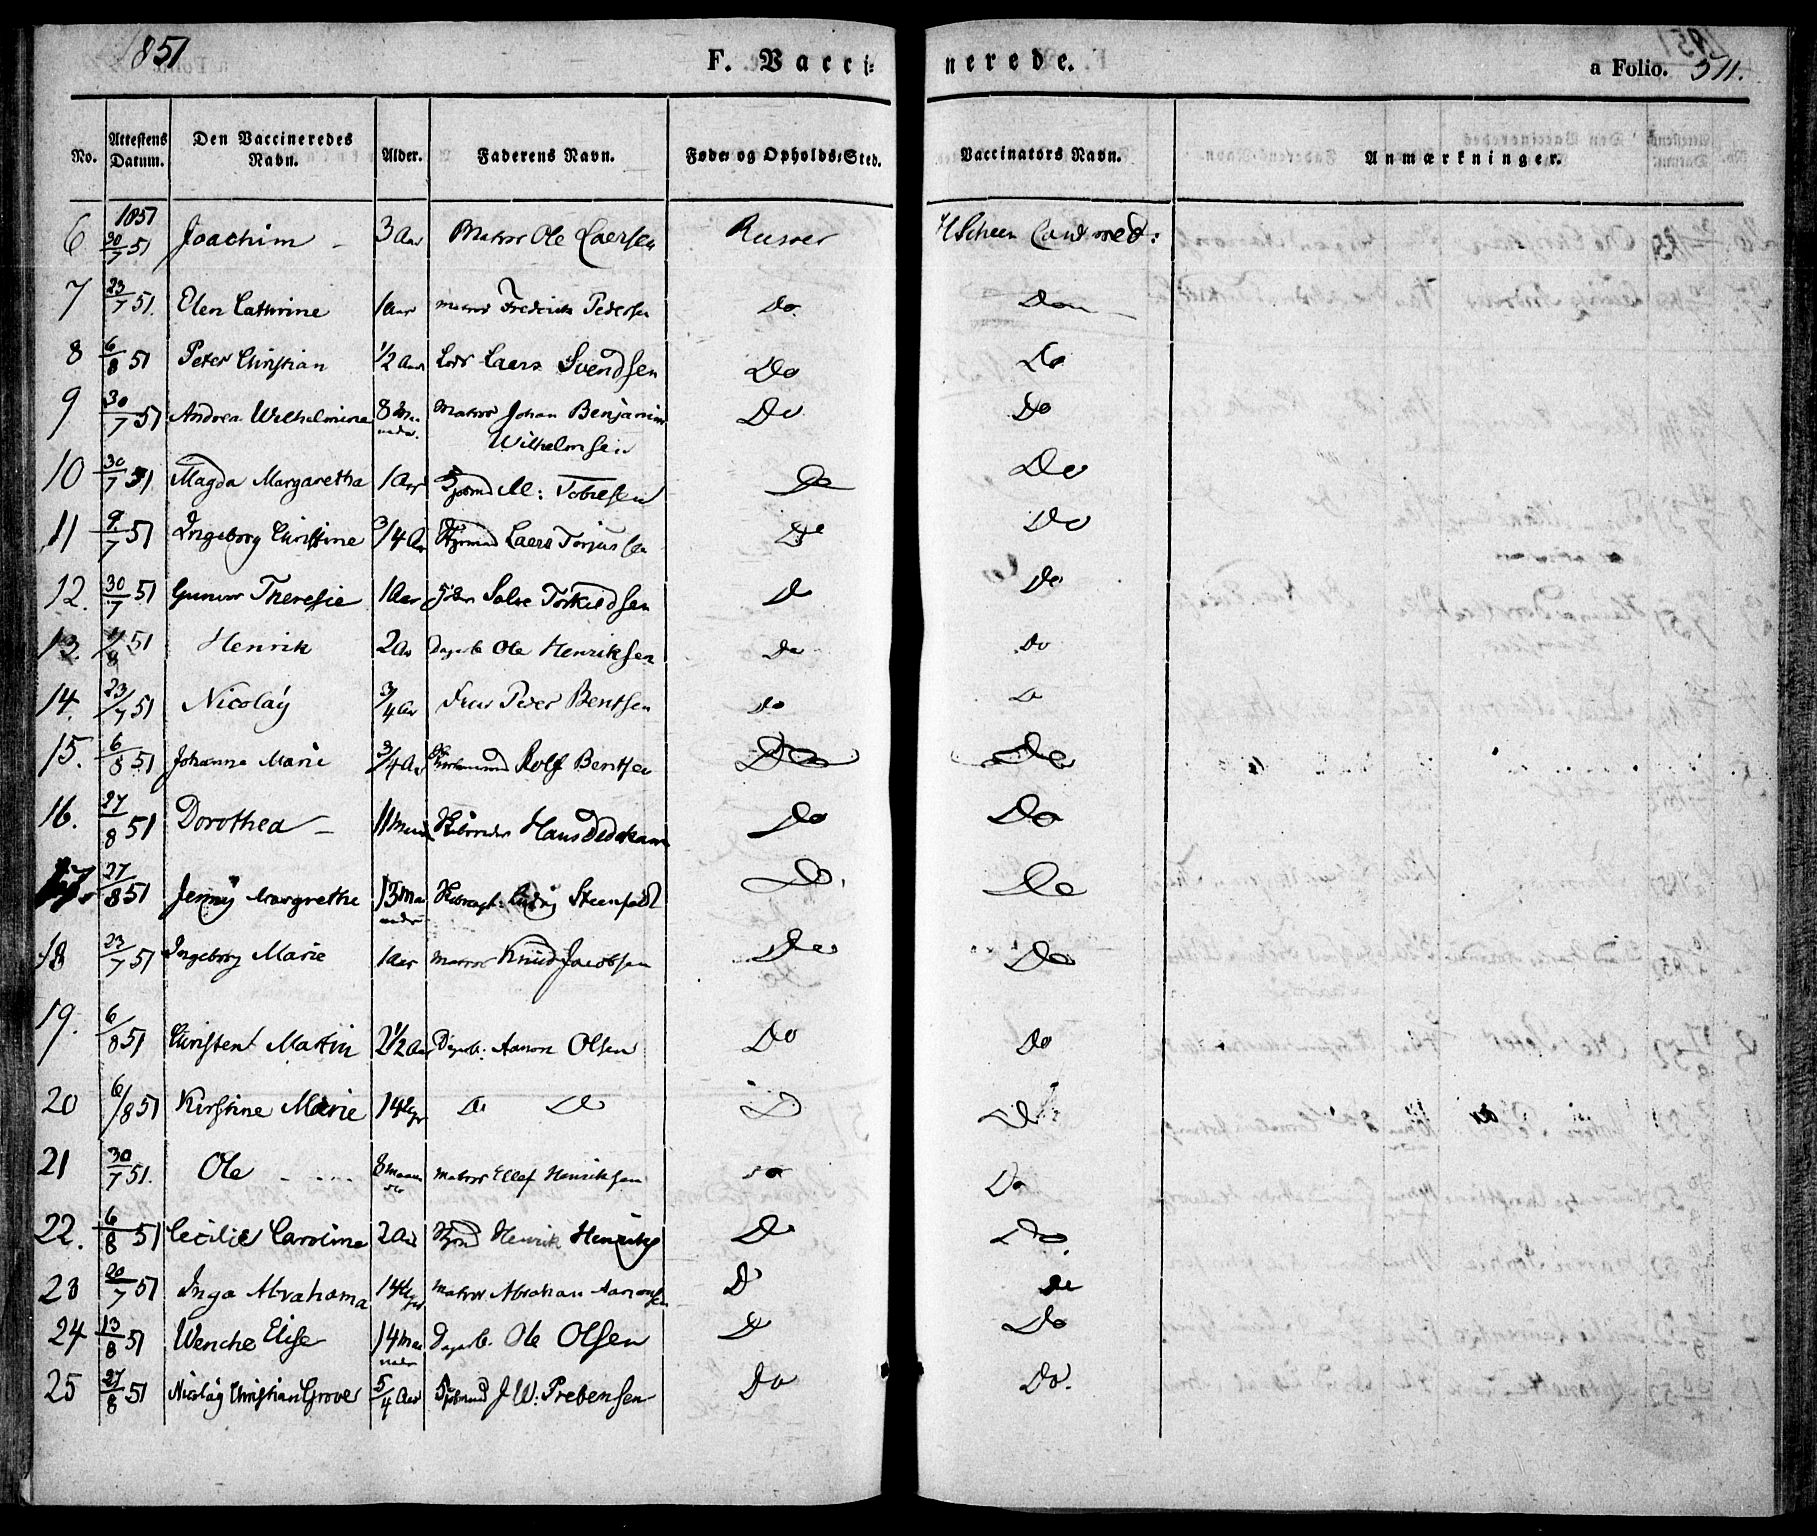 1851
F. Vacci= nerede. a Folio. 311.
No. Attestens Datum. Den Vaccineredes Navn. Alder. Faderens Navn. Føde= og Opholds=Sted. Vaccinators Navn. Anmærkninger.
1851
6 30/7 51 Joachim 3 Aar Matros Ole Laersen Riisøer H Scheen Cand med:
7 23/7 51. Elen Cathrine 1 Aar Matros Frederik Pedersen Do Do
8 6/8 51 Peter Christian 1/2 Aar Lods Laers Svendsen Do Do
9 30/7 51 Andrea Wilhelmine 8 Maa Matros Johan Benjamin Do Do
neder. Wilhelmsen
10 30/7 51 Magda Margaretha 1 Aar M: Tobiesen Do Do
11 9/7 51 Ingeborg Christine 3/4 Aar Styrmd Laers Torjussen Do Do
12. 30/7 51 Gunvor Theresie 1 Aar Salve Torkildsen Do Do
13 51 Henrik 2 Aar Dagarb Ole Henriksen Do Do
14. 23/7 51 Nicolaÿ 3/4 Aar Peder Bentsen Do Do
15. 6/8 51 Johanne Marie 3/4 Aar Rolf Bentsen Do Do
16. 27/8 51 Dorothea 11 Hans Dedekam Do Do
17. 27/8 51 Jenny Margrethe 13 Maa Steenfeldt Do. Do
neder
18 23/7 51 Ingeborg Marie 1 Aar Matros Knüd Jacobsen Do Do
19. 6/8 51 Christen Martin 2 1/2 Aar Dagarb: Aanon Olsen Do Do
20 6/8 51 Kirstine Marie 14 Do Do Do Do
21 30/7 51. Ole 8 Maane Matros Ellef Henriksen Do Do
der
22. 6/8 51 Cecilie Caroline 2 Aar Henrik Do Do
23 /7 51 Inga Abrahama 14 Matros Abraham Aanonsen Do Do
24 13/8 51 Wenche Elise 14 Maa Dagarb. Ole Olsen Do Do
neder
25 27/8 51 Nicolaÿ Christian Grover 5/4 Aar J W. Prebensen Do Do.